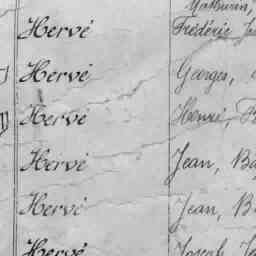 Mathurin,
Hervé Frédéric
Hervé Georges,
Hervé Henri, F
Hervé Jean, Ba
Hervé Jean, B
Hervé Joseph